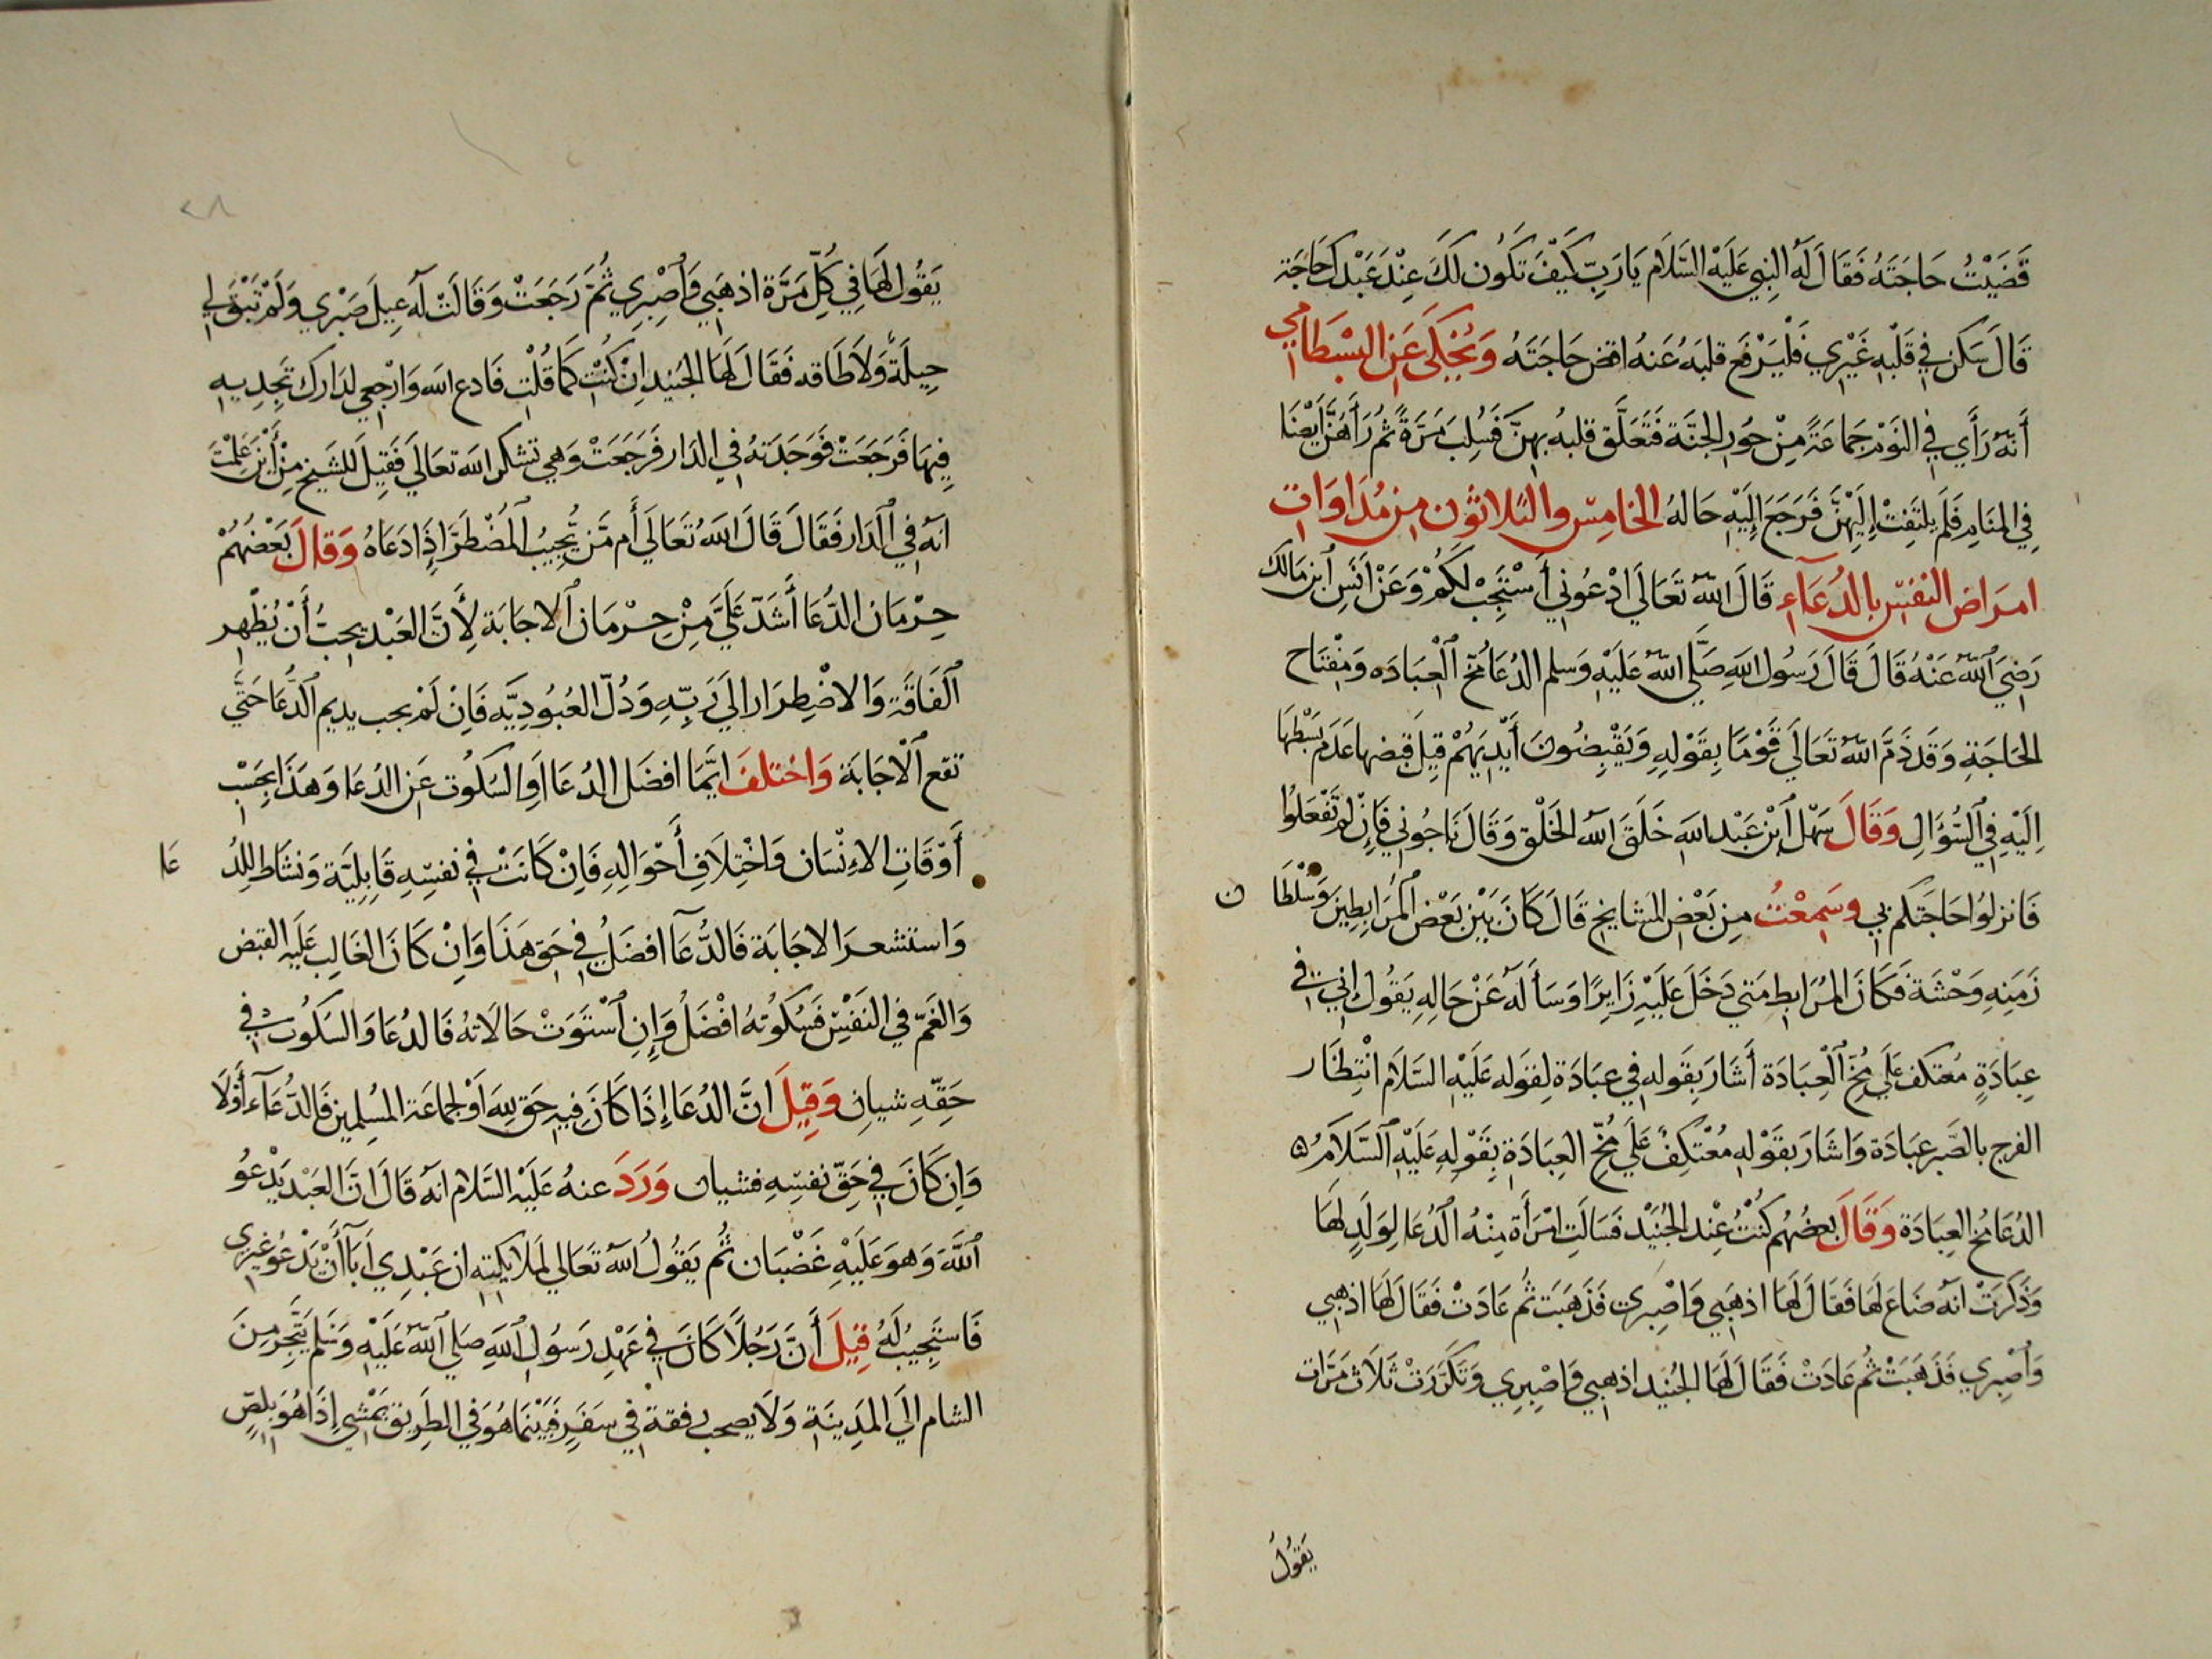 قَضَيْتُ حَاجَتَهُ فَقَالَ لَهُ النبِي عَلَيْهِ السَّلَام يَا رَبِّ كَيْفَ تَكُون لَكَ عِنْدَ عَبْدِكَ حَاجَة
قَالَ سَكَن فِي قَلْبِهِ غَيْرِي فَلْيَرْفَع قلبَهُ عَنهُ اقض حَاجَتَهُ وَيُحْكَى عَنِ البِسْطَامِي
أَنهُ رَأَي فِي النَوْم جَمَاعَةً مِنْ حُورِ الجنَّة فَتَعَلَّق قلبهُ بهِنَّ فَسُلِبَ مَرَةً ثُمَ رَأَهُنَّ أَيْضًا
فِي المنَامِ فَلَم يلتَفِتْ إِلَيْهِنَّ فَرَجَعَ إِلَيْهِ حَالهُ الخامِس والثلاثون من مُدَاوَات
امرَاض النفس بالدُعَآءِ قَالَ اللّهُ تَعَالَي ادْعُونِي أَسْتَجِبْ لَكُمْ وَعَنْ أَنَسِ ابن مَالِك
رَضِيَ اللّهُ عَنْهُ قَالَ قَالَ رَسُولُ اللَّهِ صَلَّي اللّهُ عَلَيْهِ وَسلم الدُعَا مُخّ الْعِبَادَه وَمِفْتَاح
الحَاجَةِ وَقَد ذَمَّ اللّهُ تَعَالَي قَوْمًا بِقَوْلِهِ وَيَقْبِضُونَ أَيْدِيَهُمْ قِيلَ قبضها عَدَم بَسْطِهَا
اِلَيْهِ فِي السُّؤَالِ وَقَالَ سَهْل ابْن عَبْد اللَّه خَلَقَ اللّهُ الخَلْق وَقَالَ نَاجُونِي فَاِن لَمْ تَفْعَلُوا
فَانزلوُا حَاجَتَكم بِي وسَمِعْتُ مِن بَعْض المشايخِ قَالَ كَانَ بَيْن بَعْض المُرَابِطِينَ وَسُلْطَا ن
زَمَنِهِ وَحْشَة فَكَانَ المُرَابِط مَتي دَخَلَ عَلَيْهِ زَايِرًا وَسَأَلَهُ عَنْ حَالِهِ يَقُول اِنِّي فِي
عِبَادَةٍ مُعتكف عَلَي مُخّ الْعِبَادَة أَشَارَ بِقَوله فِي عِبَادَة لِقوله عَلَيْهِ السَّلَام انْتِظَار
الفرج بالصَّبر عبَادَة وَاشَارَ بقوْلهِ مُعْتَكِفٌ عَلَي مُخّ العِبَادَة بِقَوْلِهِ عَلَيْهِ السَّلَامُ
الدُعَا مُخّ العِبَادَة وَقَالَ بعضُهُم كُنْتُ عِنْد الجُنَيْد فسَالَتِ امْرَأَة مِنْهُ الدُعَا لِوَلَدٍ لَهَا
وَذَكَرَتْ انهُ ضَاعَ لَهَا فَقَالَ لَهَا اذهَبِي وَاصْبِرِي فَذَهَبَت ثُم عَادَتْ فَقَالَ لَهَا اذهبي
وَاصْبِرِي فَذَهَبَتْ ثُم عَادَتْ فَقَالَ لَهَا الجنيد اذهبي وَاصْبِرِي وَتَكَرَّرَتْ ثَلَاث مَرَّات
يَقوُلُ
٢٨
يَقُول لَهَا فِي كُلِّ مَرَّة اذهَبِي وَاصْبِرِي ثُمَّ رَجَعَتْ وَقَالَتْ لَهُ عِيلَ صَبْرِي وَلَمْ تَبْقَ لِي
حِيلَةٌ وَلَا طَاقه فَقَالَ لَهَا الجُنَيْد اِنْ كُنْتِ كَمَا قُلْتِ فَادع اللَّه وَارْجعِي لدَارك تَجِدِيهِ
فِيهَا فَرَجَعَتْ فَوَجَدَتهُ فِي الدَار فَرَجَعَتْ وَهي تشكر اللَّه تعَالَي فَقِيلَ للشيخ مِنْ أَيْنَ عَلِمْتَ
انهُ فِي الدَار فَقَالَ قَالَ اللّهُ تَعَالَي أَم مَّن يُجِيبُ المُضْطَرَّ إِذَا دَعَاهُ وَقَالَ بَعْضُهُمْ
حِرْمَانُ الدُّعَا أَشَدّ عَلَيَّ مِنْ حِرْمَان الاجَابَة لِأَنَّ العَبْد يحِبُّ أَنْ يُظْهِر
الفَاقَة وَالاضْطِرَار الَي رَبِّهِ وَذُلّ العُبُودِيَّه فَاِنْ لَمْ يجب يديم الدُّعَا حَتَّي
تقع الْاجَابَة وَاخْتلَفَ ايَّمَا افضَل الدُعَا اَوِ السُكُوت عَن الدُعَا وَهَذَا بِحَسْبِ
أَوْقَاتِ الاِنْسَان وَاخْتِلَافِ أَحْوَالِهِ فَاِنْ كَانَتْ فِي نفسِهِ قَابِلِيَّة وَنشَاط لِلدُ عَا
وَاستشعرَ الاجَابَة فَالدُّعَآ افضَلُ فِي حَقّ هَذَا وَاِنْ كَانَ الغَالِب عَلَيه القبض
وَالغَمّ فِي النَفْسِ فَسُكُوتهُ افْضَلُ وَإِنِ اسْتَوَتْ حَالَاتهُ فَالدُعَا وَالسكُوت فِي
حَقّهِ شيان وَقِيلَ انَّ الدُعَا إِذَا كَانَ فِيهِ حَقّ للهِ أَوْ لجمَاعَة المُسْلِمِين فَالدُّعَآء أَوْلَا
وَاِن كَانَ فِي حَقّ نفسِهِ فشيان وَرَدَ عنهُ عَلَيْهِ السَّلام انهُ قَالَ انَّ العَبْد يَدْعُو
اللَّهَ وَهوَ عَلَيْهِ غَضْبَان ثُم يَقُولُ اللّهُ تَعَالي لمَلَايكتِهِ ان عَبْدِي أَبَا أَنْ يَدْعُو غيري
فَاستَجِيبُ لَهُ قِيلَ أَنَّ رَجُلًا كَانَ فِي عَهْدِ رَسُولِ اللَّهِ صَلي اللّهُ عَلَيْهِ وَسَلم يَتَّجِر مِنَ
الشام الَي المَدِينَةِ وَلَا يصحب رفقة فِي سَفَرٍ فَبَيْنَمَا هُوَ فِي الطَرِيق يَمْشِي إِذَا هُوَ بِلِصٍّ